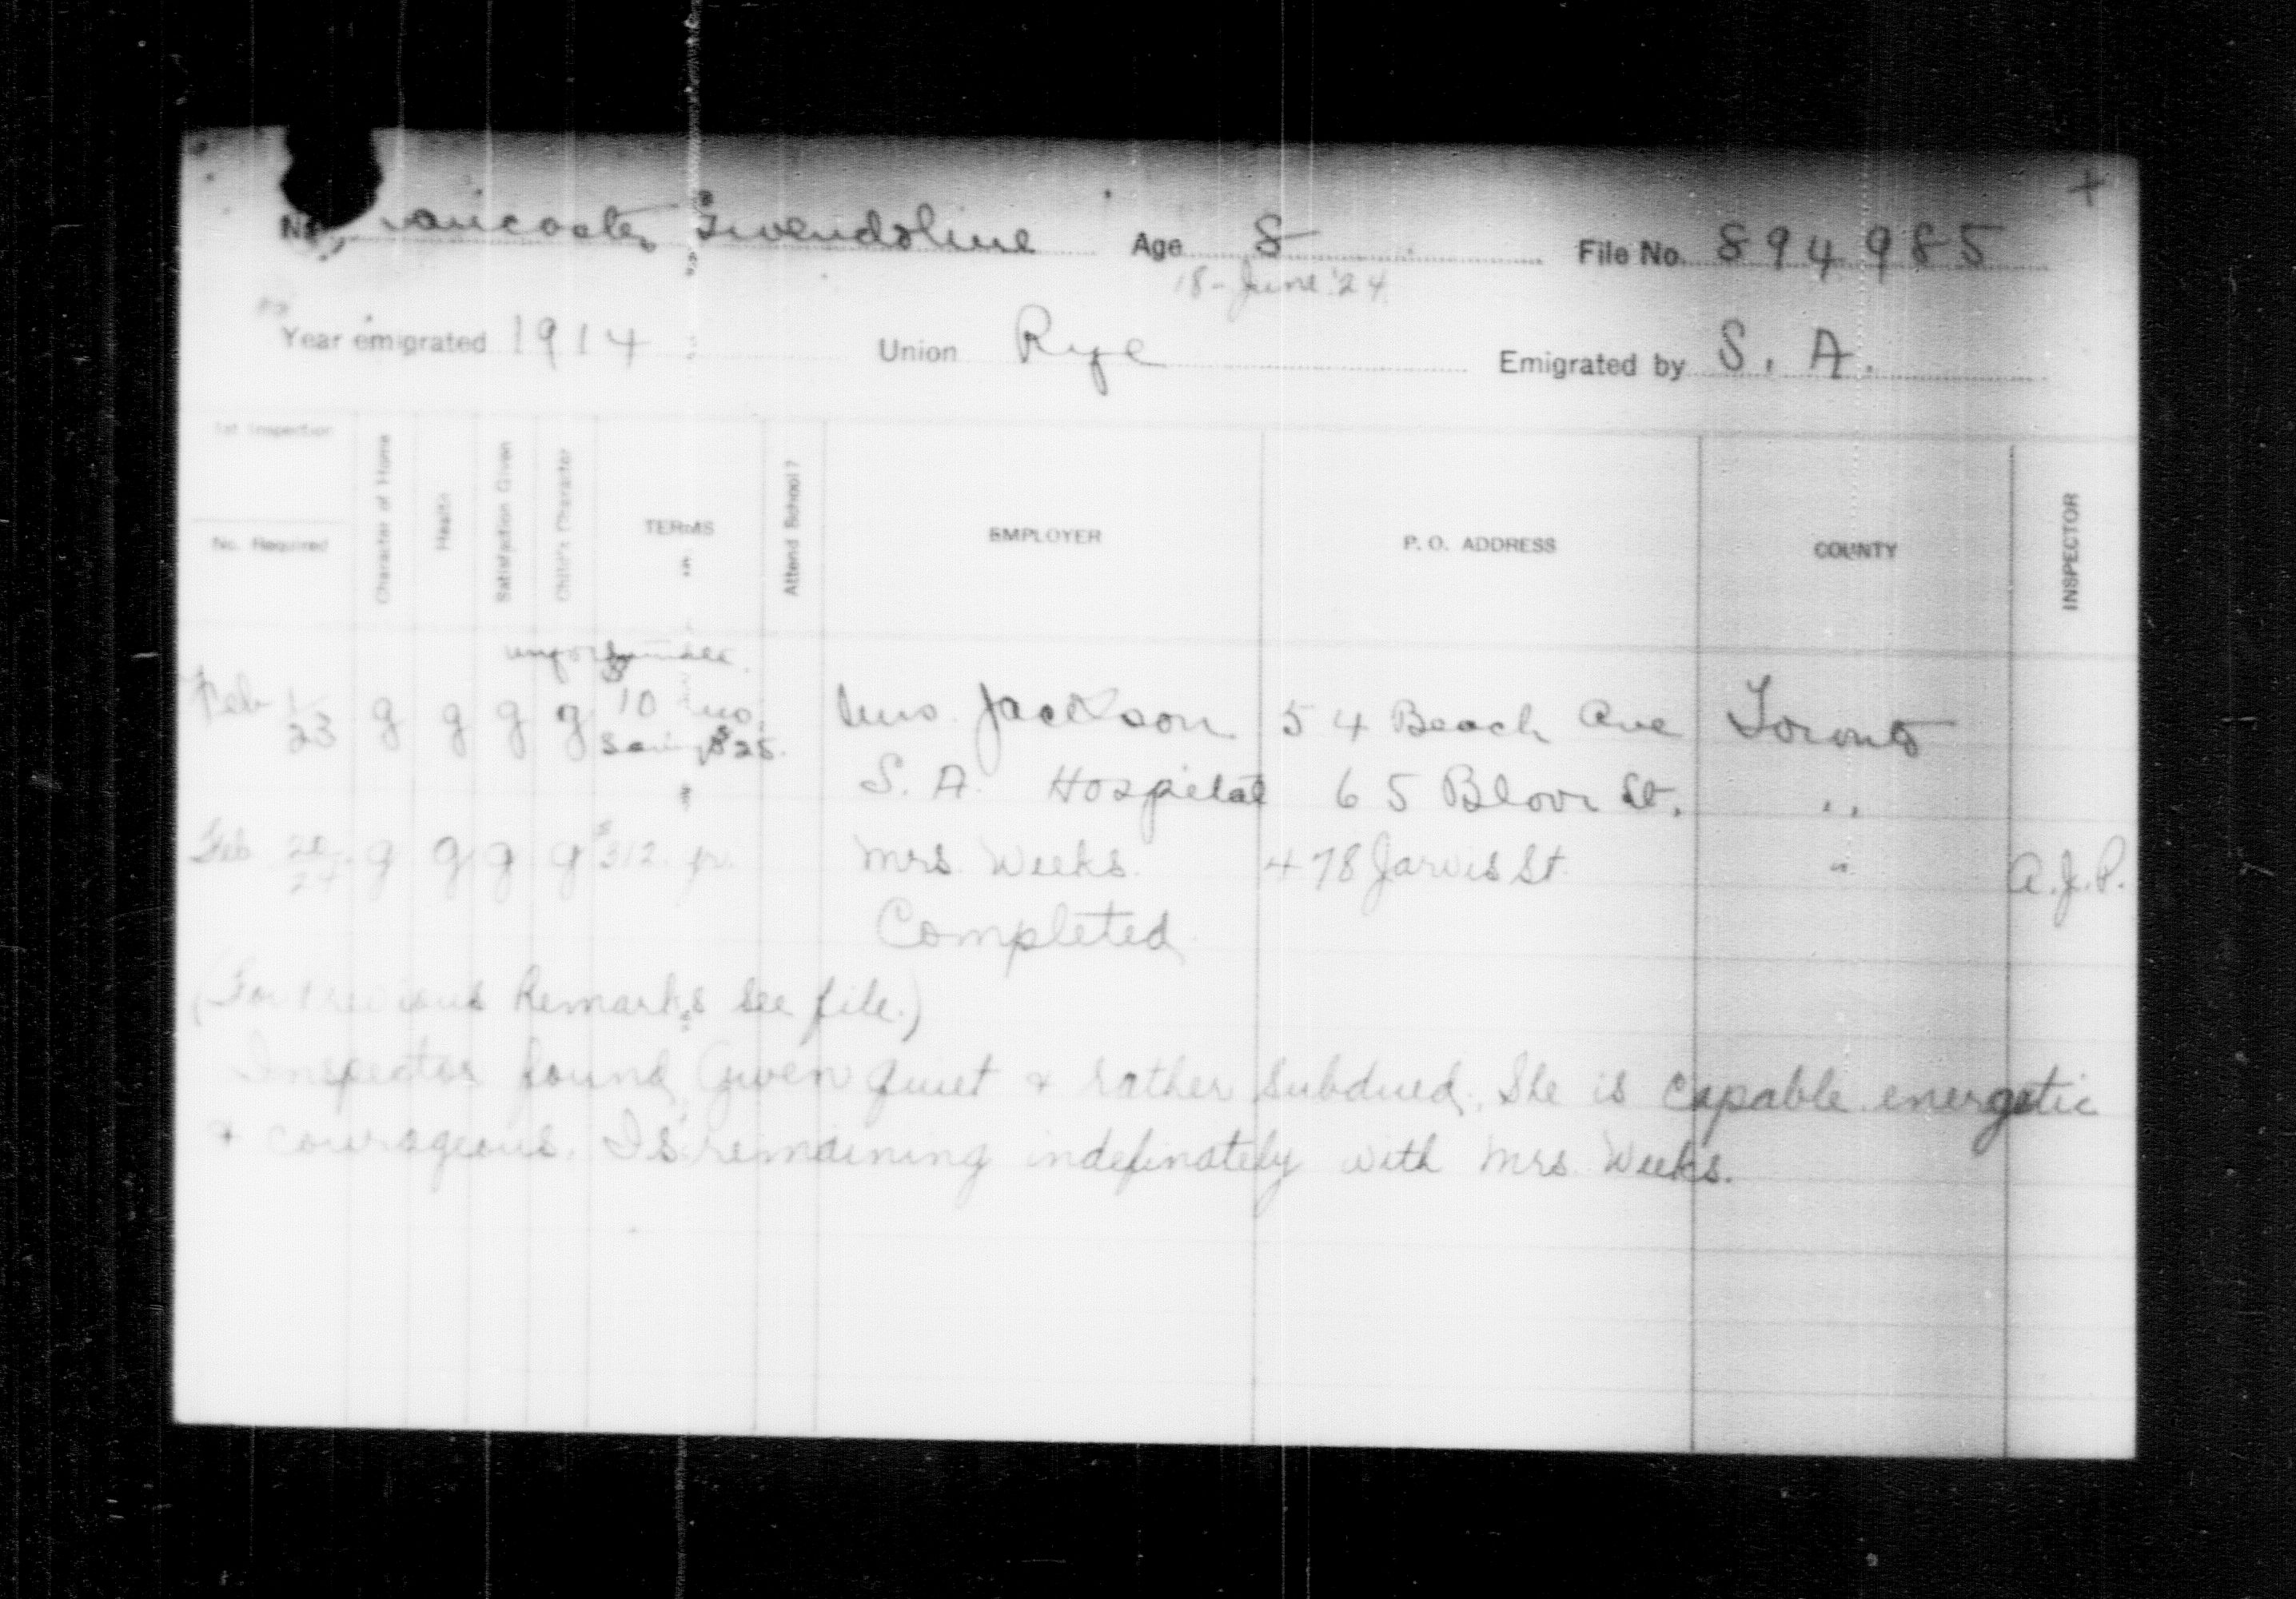 Lancaster, Gwendoline Age 8 File No. 894985
18 - June '24
Year emigrated 1914 Union Rye Emigrated by S. A.
1st Inspection
No. Required Character of Home Health Satisfaction Given Child's Character TERMS Attend School? EMPLOYER P. O. ADDRESS COUNTY INSPECTOR
Feb 1/23 g g g g $10 mo. Mrs. Jackson 54 Beach Ave Toronto
$25.
S. A. Hospital 65 Bloor St. "
Feb 20/24 g g g g $312. yr. Mrs. Weeks. 478 Jarvis St. " A.J.P.
Completed
(For Previous Remarks see file.)
Inspector found Gwen quiet & rather subdued. She is capable energetic
& courageous. Is remaining indefinately with Mrs. Weeks.